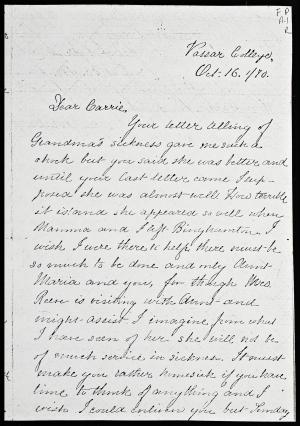 F P
A-1
R
Vassar College,
Oct. 16. 1/70.
Dear Carrie,
Your letter telling of
Grandma's sickness gave me such a
shock but you said she was better, and
until your last letter came I sup-
posed she was almost well. How terrible
it is and she appeared so well when
Mamma and I left Binghamton. I
wish I were there to help there must be
so much to be done and only Aunt
Maria and you, for though Mrs
is visiting with Aunt and
might assist I imagine from what
I have seen of her she will not be
of much service in sickness. It must
make you rather homesick if you have
time to think of anything and I
wish I could enliven you but Sunday